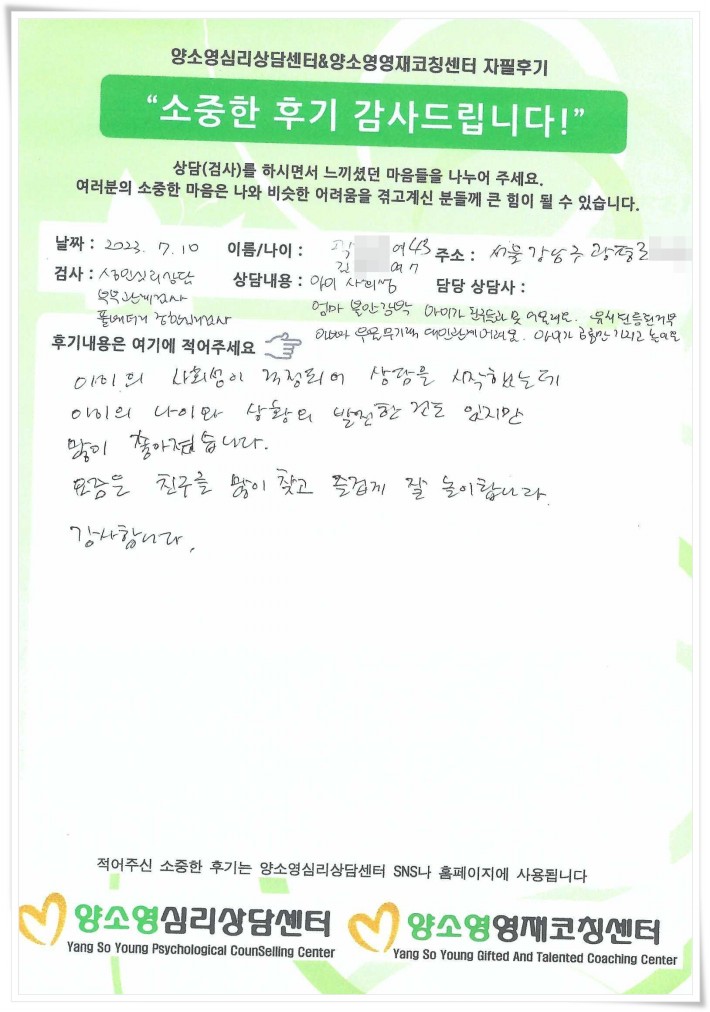 양소영심리상담센터&양소영영재코칭센터 자필후기
“소중한 후기 감사드립니다!”
상담(검사)를 하시면서 느끼셨던 마음들을 나누어 주세요.
여러분의 소중한 마음은 나와 비슷한 어려움을 겪고계신 분들께 큰 힘이 될 수 있습니다.
날짜 : 2023. 7. 10 이름/나이 : 여43 주소 : 서울 강남구 광평로
김 여 7
검사 : 성인심리상담 상담내용 : 아이 사회성 담당 상담사 :
부부관계검사 엄마 불안 강박 아이가 친구들과 못 어울려요. 유치원 등원거부
풀배터리 종합심리검사 아빠 우울 무기력 대인관계 어려움.
후기내용은 여기에 적어주세요
아이의 사회성이 걱정되어 상담을 시작했는데
아이의 나이와 상황의 발전한 것도 있지만
많이 좋아졌습니다.
요즘은 친구를 많이 찾고 즐겁게 잘 놀이합니다.
감사합니다.
적어주신 소중한 후기는 양소영심리상담센터 SNS나 홈페이지에 사용됩니다
양소영심리상담센터 양소영영재코칭센터
Yang So Young Psychological CounSelling Center Yang So Young Gifted And Talented Coaching Center